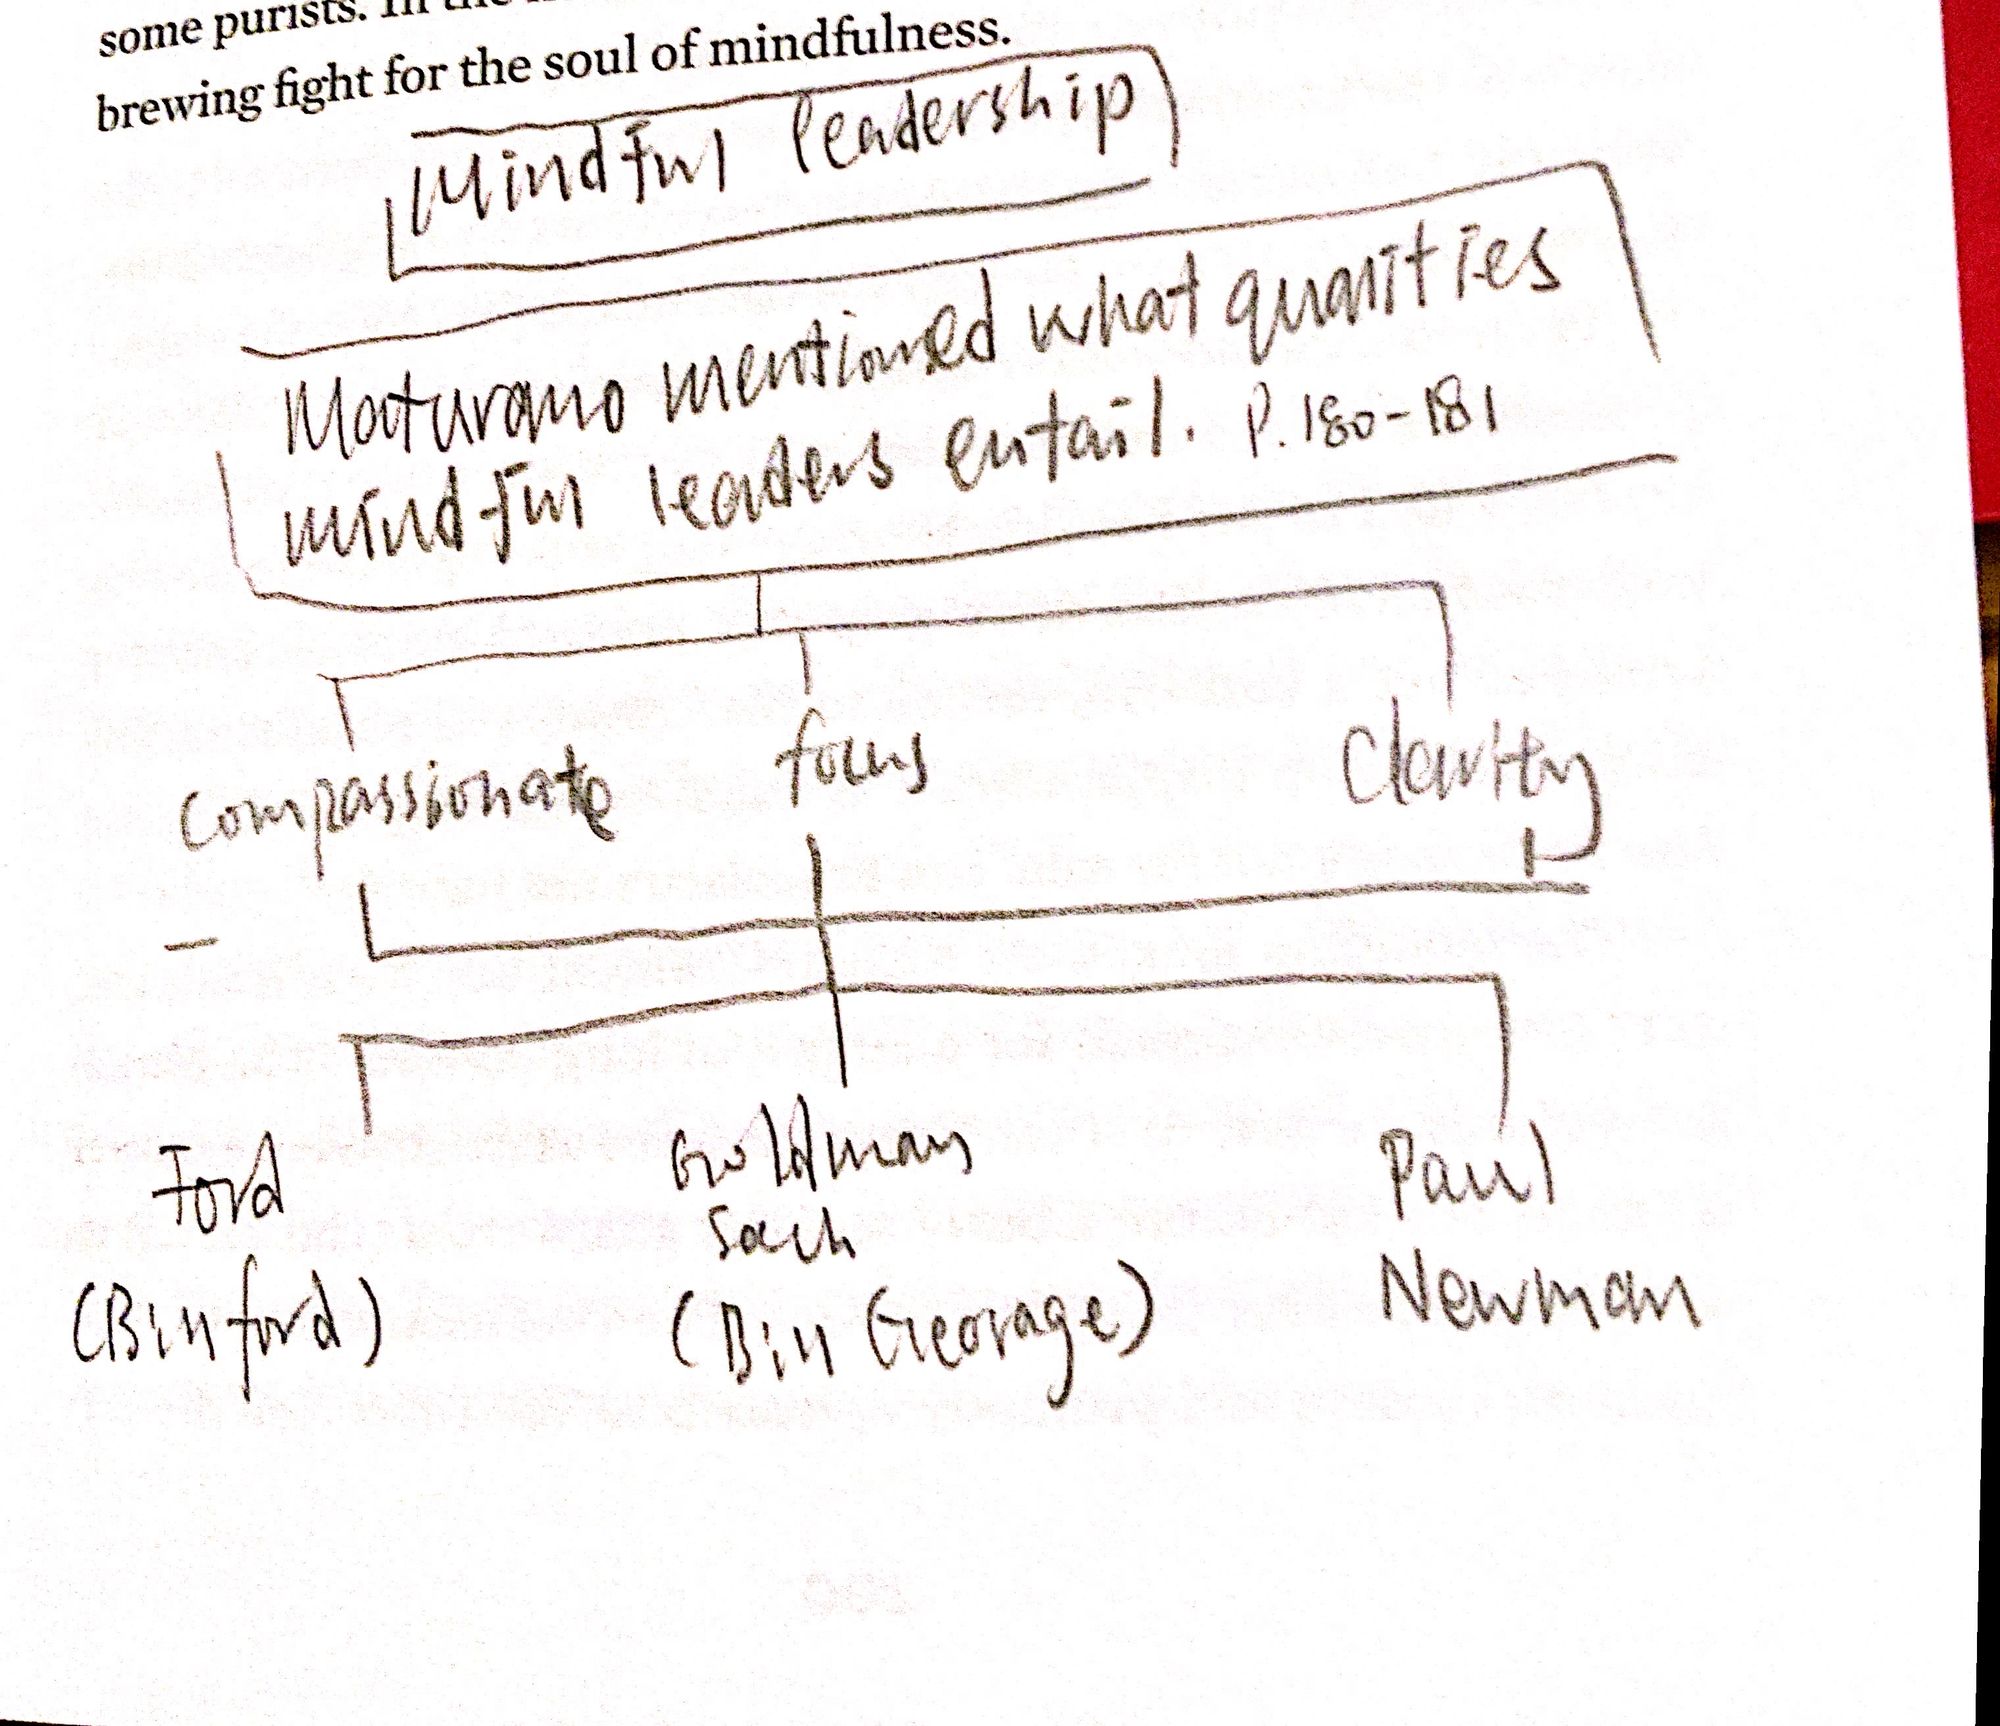 some purists. In the
brewing fight for the soul of mindfulness.
Mindful leadership
Maturano mentioned what qualities
mindful leaders entail. P. 180-181
Compassionate focus Clarity
Ford Goldman Paul
Sach
(Bill ford) (Bill Georage) Newman